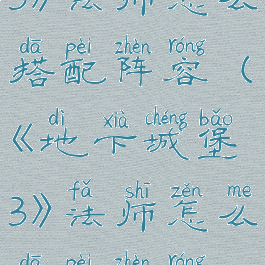 3》法师怎么
dā pèi zhèn róng
搭配阵容（
dì xià chéng bǎo
《地下城堡
fǎ shī zěn me
3》法师怎么
dā pèi zhèn róng